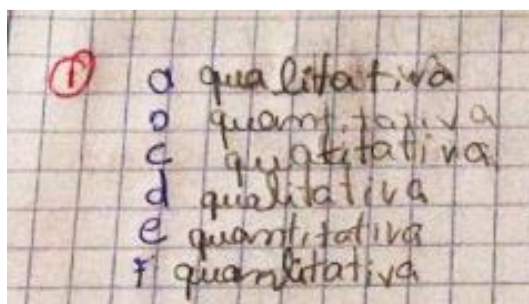 1 a qualitativa
b quantitativa
c quatitativa
d qualitativa
e quantitativa
f quamlitativa